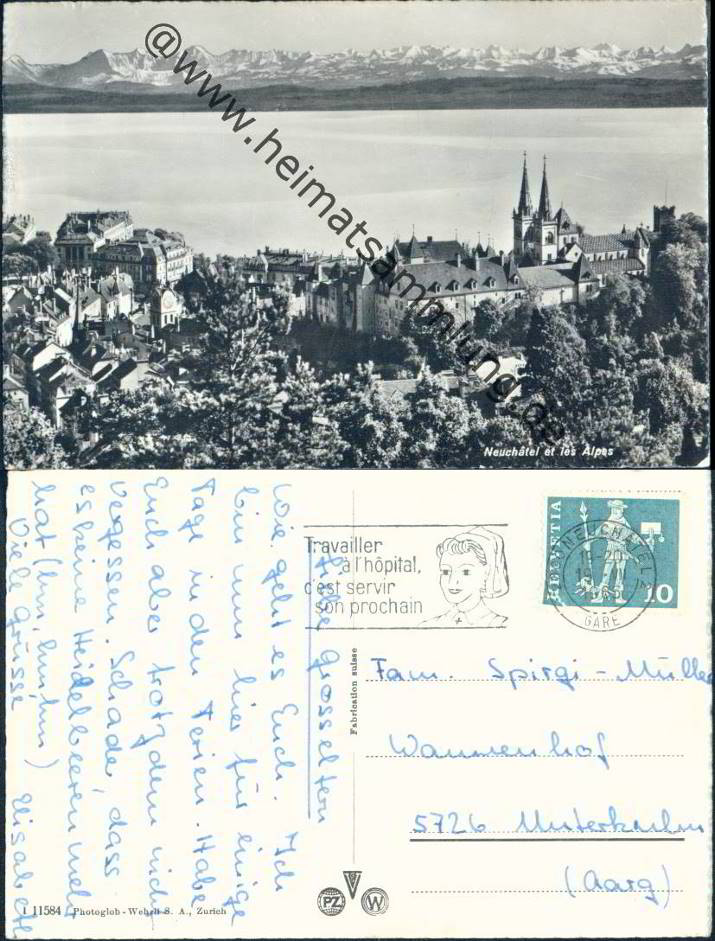 @www.heimatsammlung.de
Neuchâtel et les Alpes
Liebe Grosseltern
Wie geht es Euch. Ich
bin nun hier für einige
Tage in den Ferien. Habe
Euch aber trotzdem nicht
vergessen. Schade, dass
es keine Heidelbeeren mehr
hat (hm, hm, hm)
Viele Grüsse Elisabeth
Travailler
à l'hôpital,
c'est servir
son prochain
NEUCHÂTEL 2
GARE
HELVETIA
10
Fabrication suisse
Fam. Spirgi-Müller
Wannenhof
5726 Unterkulm
(Aarg)
PZ
W
I 11584 Photoglob-Wehrli S. A., Zurich